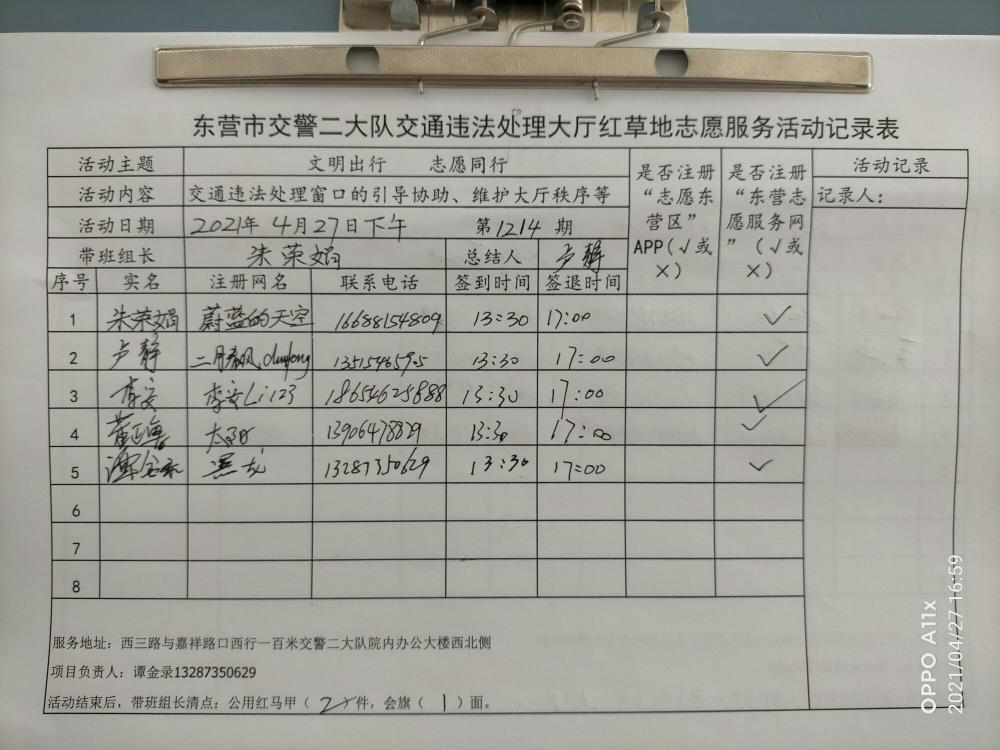 东营市交警二大队交通违法处理大厅红草地志愿服务活动记录表
活动主题 文明出行 志愿同行 是否注册“志愿东营区”APP(√或×) 是否注册“东营志愿服务网”(√或×) 活动记录
活动内容 交通违法处理窗口的引导协助、维护大厅秩序等 记录人:
活动日期 2021年4月27日下午 第1214期
带班组长 朱荣娟 总结人 卢静
序号 实名 注册网名 联系电话 签到时间 签退时间
1 朱荣娟 蔚蓝的天空 16688154809 13:30 17:00 ✓
2 卢静 二月春风 13515465905 13:30 17:00 ✓
3 李安 李安Li123 18654625888 13:30 17:00 ✓
4 太阳 13906478829 13:30 17:00 ✓
5 谭金录 黑龙 13287350629 13:30 17:00 ✓
6
7
8
服务地址:西三路与嘉祥路口西行一百米交警二大队院内办公大楼西北侧
项目负责人:谭金录13287350629
活动结束后,带班组长清点:公用红马甲(2)件,会旗(1)面。
OPPO A11x
2021/04/27 16:59